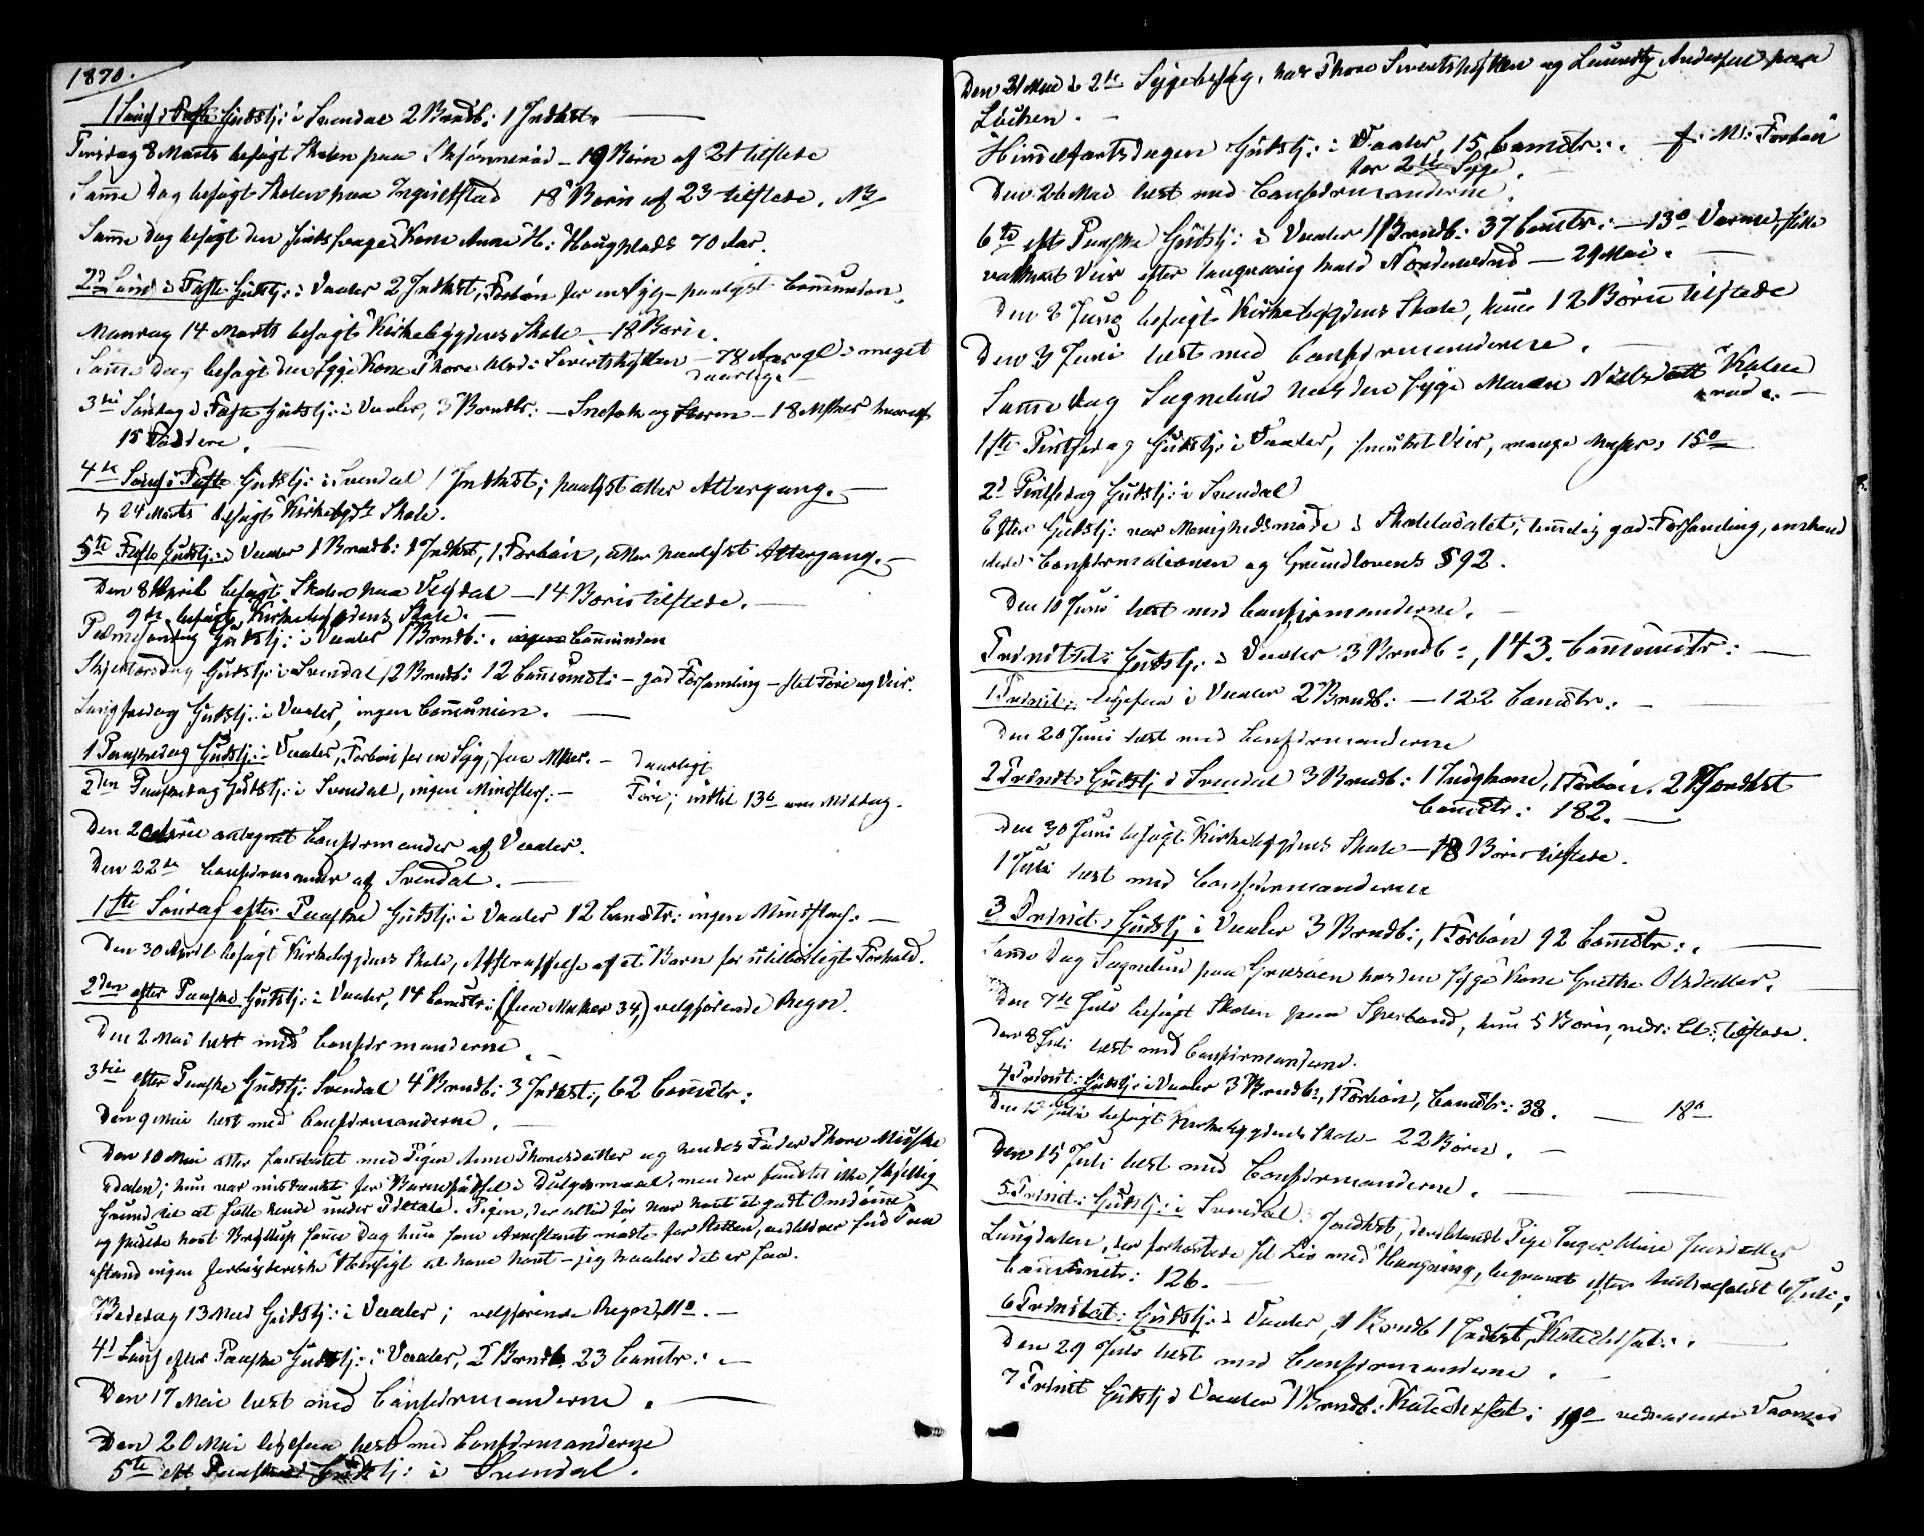 1870.
1 Sønd: i Faste Gudstj: i Svendal 2 Brndb: 1 Indkst.
Tirsdag 8 Marts besøgt Skolen paa Skjønnerød – 19 Børn af 21 tilstede
Samme Dag besøgt Skolen paa 18 Børn af 23 tilstede. NB
Samme Dag besøgt den Kone Anne H: Haugplads 70 Aar.
2d Sønd i Faste Gudstj: i Vaaler 2 Indkst, Forbøn for en Syg – Communion.
Mandag 14 Marts besøgt Kirkebygdens Skole – 18 Børn.
Samme Dag besøgt den syge Kone Thore – 78 Aar gl: meget
daarlig –
3die Søndag i Faste Gudstj: i Vaaler, 3 Brndb: – Snefok og Storm – 18 Msker hvoraf
15 Faddere.
4de Sønd i Faste Gudstj: i Svendal 1 Indkst; atter Altergang. –
D 24 Marts besøgt Kirkebygds Skole.
5te Faste Gudstj: i Vaaler 1 Brndb: 1 Indkst, 1 Forbøn, atter Altergang. –
Den 8 April besøgt Skolen paa – 14 Børn tilstede. –
9de besøgt Kirkebygdens Skole. –
Palmesøndag Gudstj: i Vaaler 1 Brndb: ingen Communion
Skjertorsdag Gudstj: i Svendal, 2 Brndb: 12 Communt: – god Forsamling – slet Føre og Veir.
Langfredag Gudstj: i Vaaler, ingen Communion. –
1 Paaskedag Gudstj: i Vaaler, Forbøn for en Syg, faa Msker. – daarligt
2den Paaskedag Gudstj: i Svendal, ingen Minist: – Føre; indtil 13° om Middag.
Den 20 April antegnet Confirmander af Vaaler.
Den 22de Confirmander af Svendal. –
1ste Søndag efter Paaske Gudstj: i Vaaler 12 Comtr: ingen –
Den 30 April besøgt Kirkebygdens Skole, Afstraffelse af et Barn for utilbørligt Forhold.
2den efter Paaske Gudstj: i Vaaler, 14 Comtr: (faa Msker 34,) velgjørende Regn.
Den 2 Mai læst med Confirmanderne. –
3die efter Paaske Gudstj: Svendal 4 Brndb: 3 Indkst:, 62 Commtr:
Den 9 Mai læst med Confirmanderne. –
Den 10 Mai atter med Pigen Anne Thoresdatter og hendes Fader Thore
dalen; hun var mistænkt for Barnefødsel i Dulgsmaal, men der fandtes ikke skjellig
Grund til at fælde hende under Tiltale. Pigen, der altid før har havt et godt Omdømme
og skulde havt Bryllup samme Dag hun som Arrestant mødte for Retten,
ingen forbryderiske Hensigt at have havt – jeg haaber det er saa.
Bededag 13 Mai Gudstj: i Vaaler; velgjørende Regn, 11°. –
4d Sønd efter Paaske Gudstj: i Vaaler, 2 Brndb. 23 Comtr: –
Den 17 Mai læst med Confirmanderne. –
Den 20 Mai ligesaa læst med Confirmanderne
5te eft Paaske Gudstj: i Svendal.
Den 21 Mai 2de Sygebesøg, hos Thore og Anderssen paa
Løken. –
Himmelfartsdagen Gudstj: i Vaaler, 15 Comtr:. Forbøn
for 2de Syge.
Den 26 Mai læst med Confirmanderne.
6te efter Paaske Gudstj: i Vaaler 1 Brndb: 37 Comtr: – 13° Varme,
Veir efter langvarig Nordenvind – 29 Mai. –
Den 2 Juny besøgt Kirkebygdens Skole, kun 12 Børn tilstede
Den 3 Juni læst med Confirmanderne. –
Samme Dag Sognebud hos den syge Maren Kolen
røde. –
1ste Pintsedag Gudstj: i Vaaler, smukt Veir, mange Msker, 15°
2d Pintsedag Gudstj: i Svendal
Efter Gudstj: var Menighedsmøde i Skolelocalet; temmelig god Forsamling,
Confirmationen og Grundlovens § 92.
Den 10 Juni læst med Confirmanderne. –
Trinitat: Gudstj: i Vaaler 3 Brndb:, 143. Communtr: –
1 Trinit: ligesaa i Vaaler 2 Brndb: – 122 Comtr: –
Den 20 Juni læst med Confirmanderne
2 Trinit: Gudstj i Svendal 3 Brndb: 1 Indgkone, 1 Forbøn. 2 Jordkst
Comtr: 182. –
Den 30 Juni besøgt Kirkebygdens Skole – 18 Børn tilstede.
1 Juli læst med Confirmanderne
3 Trinit: Gudstj i Vaaler 3 Brndb:, 1 Forbøn 92 Commtr:. –
Samme Dag Sognebud paa hos den syge Kone Grethe Olsdatter.
Den 7de Juli besøgt Skolen paa kun 5 Børn, tilstede.
Den 8 Juli læst med Confirmanderne.
4 Trinit: Gudstj: i Vaaler 3 Brndb:, 1 Forbøn, Comtr: 38. – 18°
Den 12 Juli besøgt Kirkebygdens Skole – 22 Børn. –
Den 15 Juli læst med Confirmanderne. –
5 Trinit: Gudstj: i Svendal. Jordkst, deriblandt Pige Inger
der forkortede sit Liv med Hængning, begravet efter 6 Juli;
Communtr: 126. –
6 Trinitat: Gudstj: i Vaaler, 1 Brndb 1 Indkst, Katechisat:. –
Den 29 Juli læst med Confirmanderne.
7 Trinit Gudstj i Vaaler 1 Brndb: Katechisat: 19° vedvarende Varme